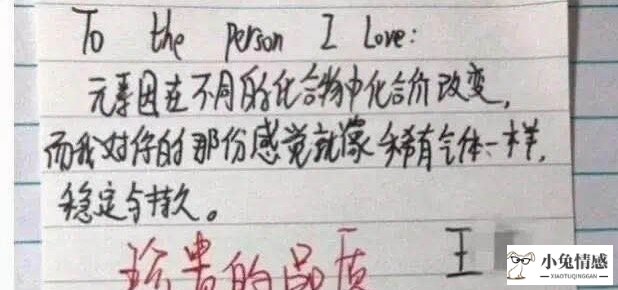 To the person I love:
元素因在不同的化合物中化合价改变,
而我对你的那份感觉就像稀有气体一样,
稳定与持久。
珍贵的品质 王
小兔情感
XIAOTUQINGGAN